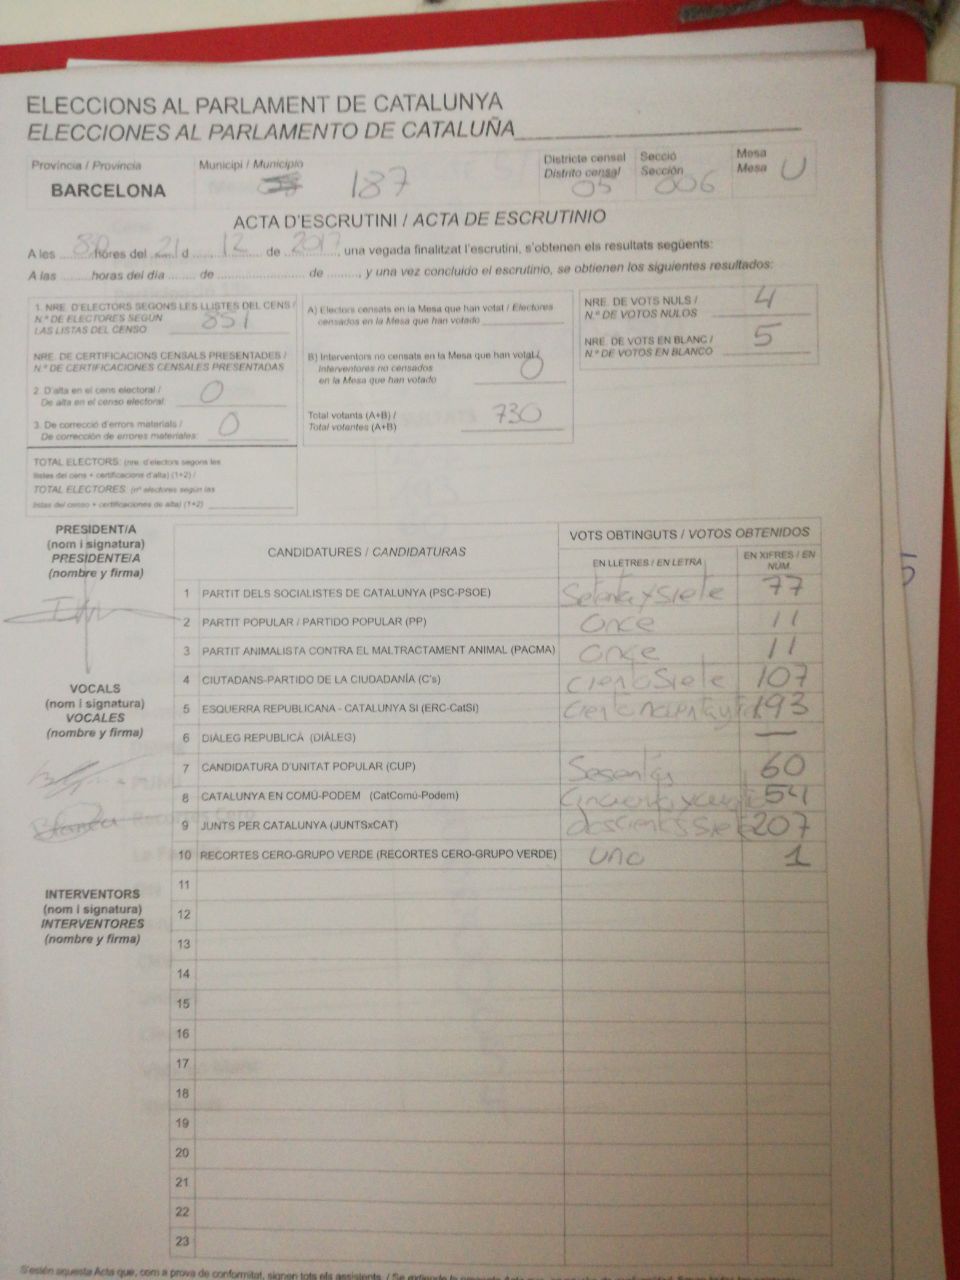 ELECCIONS AL PARLAMENT DE CATALUNYA
ELECCIONES AL PARLAMENTO DE CATALUÑA
Província / Provincia
BARCELONA
Municipi / Municipio
187
Districte censal
Distrito censal
05
Secció
Sección
006
Mesa
Mesa
U
ACTA D'ESCRUTINI / ACTA DE ESCRUTINIO
A les ........ hores del 21 d ..... 12 ..... de 2017, una vegada finalitzat l'escrutini, s'obtenen els resultats següents:
A las ........ horas del día ........ de ........................ de ........, y una vez concluido el escrutinio, se obtienen los siguientes resultados:
1. NRE. D'ELECTORS SEGONS LES LLISTES DEL CENS /
N.º DE ELECTORES SEGÚN
LAS LISTAS DEL CENSO 851
NRE. DE CERTIFICACIONS CENSALS PRESENTADES /
N.º DE CERTIFICACIONES CENSALES PRESENTADAS
2. D'alta en el cens electoral /
De alta en el censo electoral: 0
3. De correcció d'errors materials /
De corrección de errores materiales: 0
TOTAL ELECTORS: (nre. d'electors segons les
llistes del cens + certificacions d'alta) (1+2) /
TOTAL ELECTORES: (nº electores según las
listas del censo + certificaciones de alta) (1+2)
A) Electors censats en la Mesa que han votat / Electores
censados en la Mesa que han votado
B) Interventors no censats en la Mesa que han votat /
Interventores no censados
en la Mesa que han votado 0
Total votants (A+B) /
Total votantes (A+B) 730
NRE. DE VOTS NULS /
N.º DE VOTOS NULOS 4
NRE. DE VOTS EN BLANC /
N.º DE VOTOS EN BLANCO 5
PRESIDENT/A
(nom i signatura)
PRESIDENTE/A
(nombre y firma)
VOCALS
(nom i signatura)
VOCALES
(nombre y firma)
INTERVENTORS
(nom i signatura)
INTERVENTORES
(nombre y firma)
CANDIDATURES / CANDIDATURAS
VOTS OBTINGUTS / VOTOS OBTENIDOS
EN LLETRES / EN LETRA
EN XIFRES / EN NÚM.
1 PARTIT DELS SOCIALISTES DE CATALUNYA (PSC-PSOE) Setenta y siete 77
2 PARTIT POPULAR / PARTIDO POPULAR (PP) once 11
3 PARTIT ANIMALISTA CONTRA EL MALTRACTAMENT ANIMAL (PACMA) once 11
4 CIUTADANS-PARTIDO DE LA CIUDADANÍA (C's) ciento siete 107
5 ESQUERRA REPUBLICANA - CATALUNYA SÍ (ERC-CatSí) 193
6 DIÀLEG REPUBLICÀ (DIÀLEG) —
7 CANDIDATURA D'UNITAT POPULAR (CUP) 60
8 CATALUNYA EN COMÚ-PODEM (CatComú-Podem) 54
9 JUNTS PER CATALUNYA (JUNTSxCAT) 207
10 RECORTES CERO-GRUPO VERDE (RECORTES CERO-GRUPO VERDE) uno 1
11
12
13
14
15
16
17
18
19
20
21
22
23
S'estén aquesta Acta que, com a prova de conformitat, signen tots els assistents. /